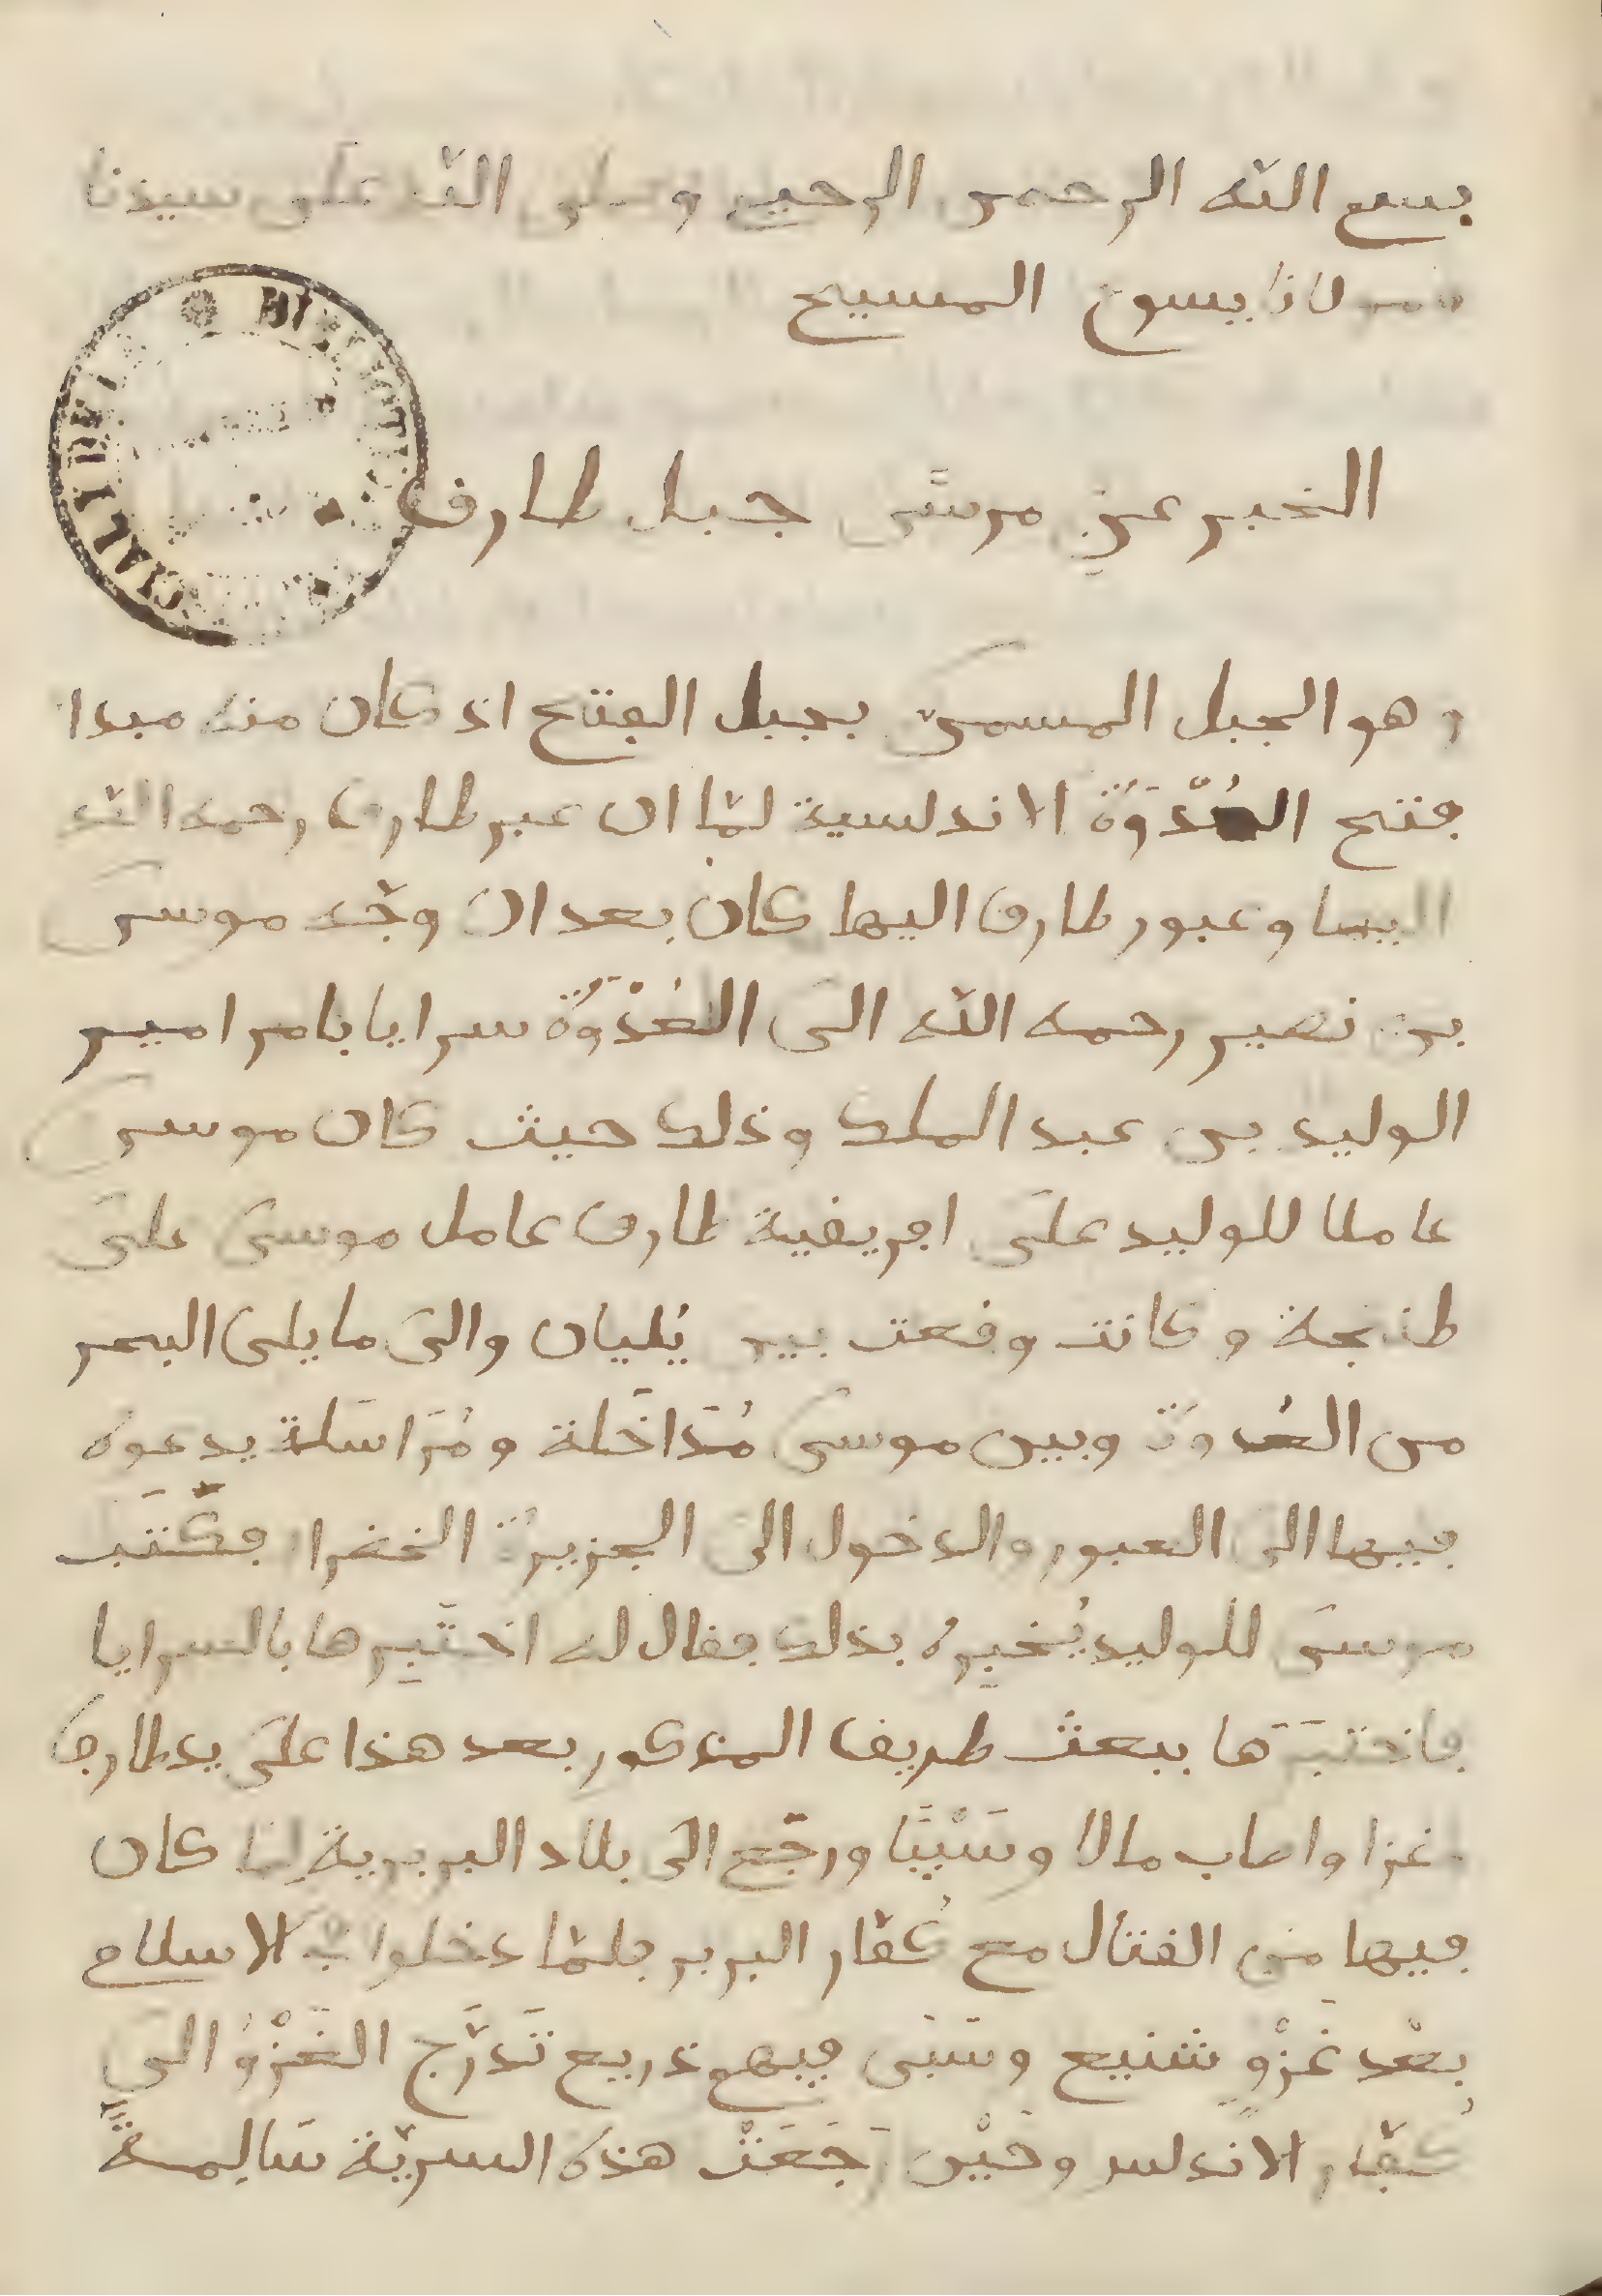 بسم الله الرحمن الرحيم وصلى الله على سيدنا
ومولانا يسوع المسيح
الخبر عن مرسى جبل طارق
وهو الجبل المسمى بجبل الفتح اذ كان منه مبدا
فتح العُدْوَة الاندلسية لمّا ان عبر طارق رحمه الله
اليها وعبور طارق اليها كان بعد ان وجّه موسى
بن نصير رحمه الله الى العُدْوَة سرايا بامر امير
الوليد بن عبد الملك وذلك حيث كان موسى
عاملا للوليد على افريقية طارق عامل موسى على
طنجة وكانت وقعت بين يُليان والى ما يلى البحر
من العُدوة وبين موسى مُدَاخَلة ومُرَاسَلة يدعوه
فيها الى العبور والدخول الى الجزيرة الخضرا فكَتَب
موسى للوليد يُخبِره بذلك فقال له اختَبِرها بالسرايا
فاختبَرَها ببعث طريف المذكور بعد هذا على يد طارق
غزا واصاب مالا وسَبْيًا ورجَع الى بلاد البربرية لِما كان
فيها من القتال مع كُفّار البربر فلمّا دخلوا الاسلام
بعْد غَزْوٍ شنيع وسَبْى فيهم ذريع تَدَرَّج الغَزْوُ الى
كُفّار الاندلس وحَيْن رَجَعَتْ هذه السريّة سَالِمةً